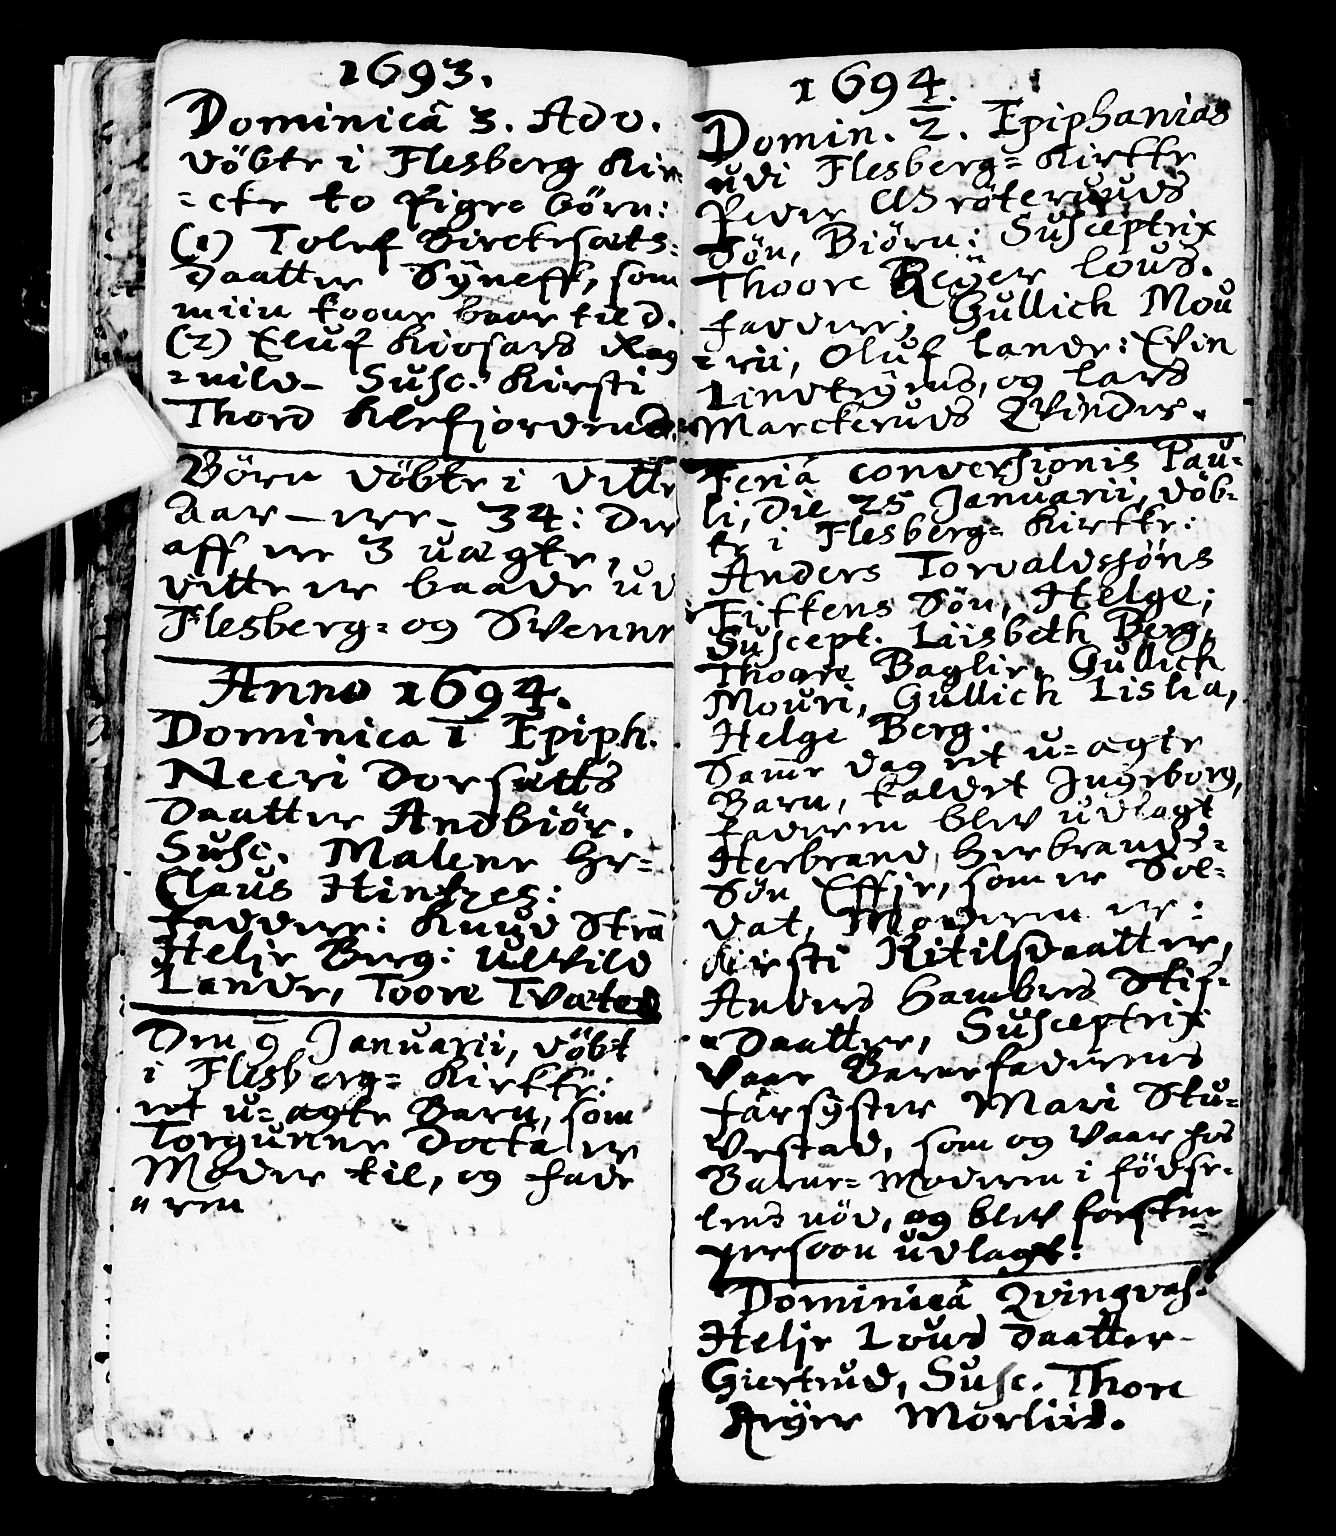 1693.
Dominicâ 3. Adv.
döbte i Flesberg Kir=
=cke to Pige börn:
(1) Tolef Birckesæts=
Daatter Sÿneff, som
miin koone baar til d.
(2) Eluf Kiosards Rag
=nild_ Susc. Kirsti
Thord Klefjorderud.
Börn döbte i dette
Aar _ ere _ 34: Der
aff er 3 uægte,
dette er baade ud
Flesberg= og Svenne
Anno 1694.
Dominica 1 Epiph.
Neeri Dorsætts
Daatter Andbiör.
Susc. Malene Hr=
Claus Hintzes:
Faddere: Knud Strā
Helje Berg: Ulvild
Lande, Toore Tvæted
Den 9 Januarii, döbt
i Flesberg= Kirkke:
et u=ægte Barn, som
Torgunne Docka er
Moder til, og fade
"ren
1694.
Domin. 2. Epiphanias
udi Flesberg= Kirkke
Peder Gröteruuds
Sön, Biörn: Susceptrix
Thoore Reÿer lous.
Faddere; Gullich Mou
=rii, Oluf lande: Evin
Lindtrÿms, og lars
Marckeruds Qvinder.
Feriâ conversionis Pau=
li, Die 25 Januarii, döb=
te i Flesberg= Kirkke:
Anders Torvaldssöns
Fiffkens Sön, Helge;
Suscept. Liisbeth Berg,
Thoore Baglie, Gullich
Mouri, Gullich Lislia,
Helge Berg.
Same dag et u=ægte
Barn, kaldet Ingeborg,
Faderen blev udlagt
Herbrand Herbrands=
Sön Effje, som er Sol=
dat, Moderen er:
Kirsti Kitilsdaatter,
Anders Hambres Stif=
=Daatter, Susceptrix
vaar Barnefaderens
Farsÿster Mari Stu=
vestad, som og vaar hos
Barne= Moderen i födse=
lens nöd, og blev for ste
persoon udlagt:
Dominicâ Qvinqvas.
Helje Lous Daatter
Giertrud, Susc. Thore
Reÿer Morliid.